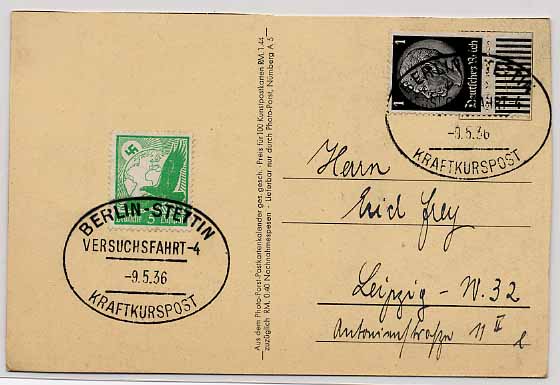 BERLIN-STETTIN
VERSUCHSFAHRT-4
-9.5.36
KRAFTKURSPOST
Aus dem Photo-Porst-Postkartenkalender ges. gesch. Preis für 100 Kunstpostkarten RM. 1.44
zuzüglich RM. 0.40 Nachnahmespesen - Lieferbar nur durch Photo-Porst, Nürnberg A 5
1
Deutsches Reich
1
-9.5.36
KRAFTKURSPOST
Herrn
Erich Frey
Leipzig - W. 32
Antonienstraße 11 II